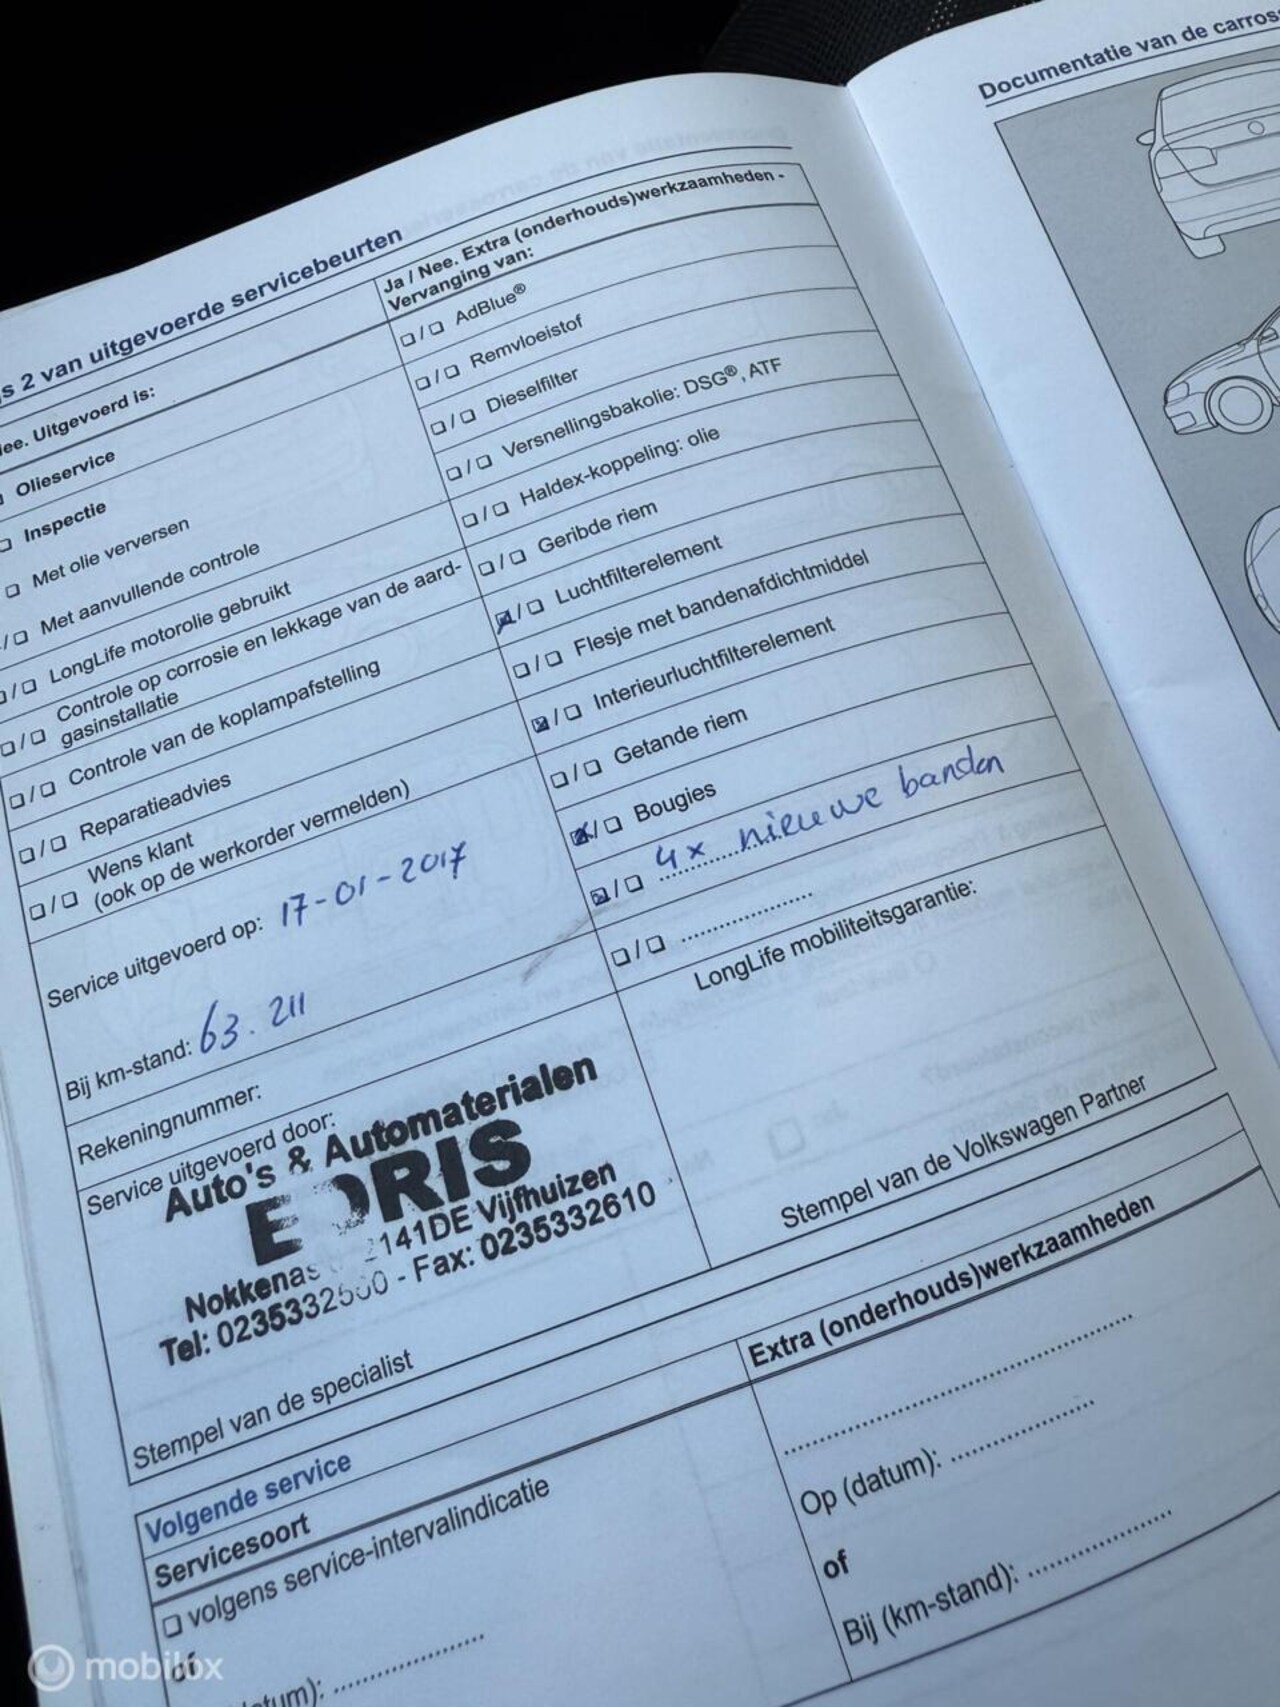 s 2 van uitgevoerde servicebeurten
ee. Uitgevoerd is:
Olieservice
Inspectie
Met olie verversen
Met aanvullende controle
LongLife motorolie gebruikt
Controle op corrosie en lekkage van de aard-
gasinstallatie
Controle van de koplampafstelling
Reparatieadvies
Wens klant
(ook op de werkorder vermelden)
Service uitgevoerd op: 17-01-2017
Bij km-stand: 63.211
Rekeningnummer:
Service uitgevoerd door:
Auto's & Automaterialen
EDRIS
Nokkenas 2141DE Vijfhuizen
Tel: 0235332500 - Fax: 0235332610
Stempel van de specialist
Ja / Nee. Extra (onderhouds)werkzaamheden -
Vervanging van:
AdBlue®
Remvloeistof
Dieselfilter
Versnellingsbakolie: DSG®, ATF
Haldex-koppeling: olie
Geribde riem
Luchtfilterelement
Flesje met bandenafdichtmiddel
Interieurluchtfilterelement
Getande riem
Bougies
4x nieuwe banden
LongLife mobiliteitsgarantie:
Stempel van de Volkswagen Partner
Volgende service
Servicesoort
volgens service-intervalindicatie
of
datum):
Extra (onderhouds)werkzaamheden
Op (datum):
of
Bij (km-stand):
Documentatie van de carross
mobilox